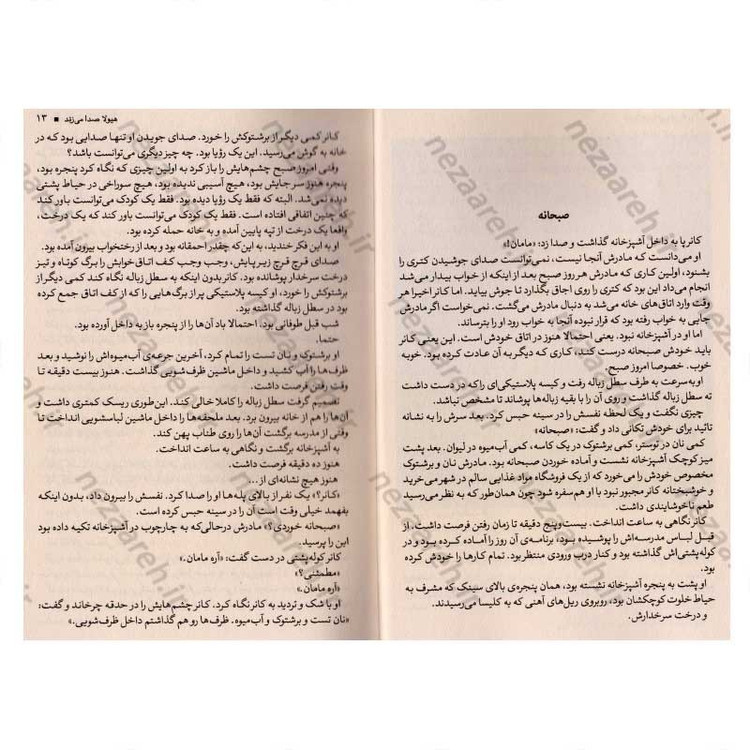 صبحانه
کانر پا به داخل آشپزخانه گذاشت و صدا زد: «مامان!»
او می‌دانست که مادرش آنجا نیست، نمی‌توانست صدای جوشیدن کتری را
بشنود، اولین کاری که مادرش هر روز صبح بعد از اینکه از خواب بیدار می‌شد
انجام می‌داد این بود که کتری را روی اجاق بگذارد تا جوش بیاید. اما کانر اخیرا هر
وقت وارد اتاق‌های خانه می‌شد به دنبال مادرش می‌گشت. نمی‌خواست اگر مادرش
جایی به خواب رفته بود که قرار نبوده آنجا به خواب رود او را بترساند.
اما او در آشپزخانه نبود. یعنی احتمالا هنوز در اتاق خودش است. این یعنی کانر
باید خودش صبحانه درست کند، کاری که دیگر به آن عادت کرده بود. خوبه
خوب. خصوصا امروز صبح.
او به‌سرعت به طرف سطل زباله رفت و کیسه پلاستیکی‌ای را که در دست داشت
ته سطل زباله گذاشت و روی آن را با بقیه زباله‌ها پوشاند تا مشخص نباشد.
چیزی نگفت و یک لحظه نفسش را در سینه حبس کرد. بعد سرش را به نشانه
تائید برای خودش تکانی داد و گفت: «صبحانه»
کمی نان در توستر، کمی برشتوک در یک کاسه، کمی آب‌میوه در لیوان. بعد پشت
میز کوچک آشپزخانه نشست و آماده خوردن صبحانه بود. مادرش نان و برشتوک
مخصوص خودش را داشت که از یک فروشگاه مواد غذایی سالم در شهر می‌خرید
و خوشبختانه کانر مجبور نبود با او هم سفره شود چون همان‌طور که به نظر می‌رسید
طعم ناخوشایندی داشت.
کانر نگاهی به ساعت انداخت. بیست‌وپنج دقیقه تا زمان رفتن فرصت داشت. از
قبل لباس مدرسه‌اش را پوشیده بود، برنامه‌ی آن روز را آماده کرده بود و در
کوله‌پشتی‌اش گذاشته بود و کنار درب ورودی منتظر بود. تمام کارها را خودش کرده
بود.
او پشت به پنجره آشپزخانه نشسته بود، همان پنجره‌ی بالای سینک که مشرف به
حیاط خلوت کوچکشان بود، روبروی ریل‌های آهنی که به کلیسا می‌رسیدند.
و درخت سرخدارش.
هیولا صدا می‌زند ■ ۱۳
کانر کمی دیگر از برشتوکش را خورد. صدای جویدن او تنها صدایی بود که در
خانه به گوش می‌رسید. این یک رؤیا بود. چه چیز دیگری می‌توانست باشد؟
وقتی امروز صبح چشم‌هایش را باز کرد به اولین چیزی که نگاه کرد پنجره بود،
پنجره هنوز سر جایش بود، هیچ آسیبی ندیده بود، هیچ سوراخی در حیاط پشتی
دیده نمی‌شد. البته که فقط یک رؤیا دیده بود. فقط یک کودک می‌توانست باور کند
که چنین اتفاقی افتاده است. فقط یک کودک می‌توانست باور کند که یک درخت،
واقعا یک درخت از تپه پایین آمده و به خانه حمله کرده بود.
او به این فکر خندید، به این‌که چقدر احمقانه بود و بعد از رختخواب بیرون آمده بود.
صدای قرچ قرچ زیر پایش، وجب وجب کف اتاق خوابش را برگ کوتاه و تیز
درخت سرخدار پوشانده بود. کانر بدون اینکه به سطل زباله نگاه کند کمی دیگر از
برشتوکش را خورد، او کیسه پلاستیکی پر از برگ‌هایی را که از کف اتاق جمع کرده
بود در سطل زباله گذاشته بود.
شب قبل طوفانی بود. احتمالا باد آن‌ها را از پنجره باز به داخل آورده بود.
حتما.
او برشتوک و نان تست را تمام کرد، آخرین جرعه‌ی آب‌میوه‌اش را نوشید و بعد
ظرف‌ها را آب کشید و داخل ماشین ظرف‌شویی گذاشت. هنوز بیست دقیقه تا
وقت رفتن فرصت داشت.
تصمیم گرفت سطل زباله را کاملا خالی کند. این‌طوری ریسک کمتری داشت و
آن‌ها را هم از خانه بیرون برد. بعد ملحفه‌ها را داخل ماشین لباسشویی انداخت تا
وقتی از مدرسه برگشت آن‌ها را روی طناب پهن کند.
به آشپزخانه برگشت و نگاهی به ساعت انداخت.
هنوز ده دقیقه فرصت داشت.
هنوز هیچ نشانه‌ای از...
«کانر؟» یک نفر از بالای پله‌ها او را صدا کرد. نفسش را بیرون داد، بدون اینکه
بفهمد خیلی وقت است آن را در سینه حبس کرده است.
«صبحانه خوردی؟» مادرش درحالی‌که به چارچوب در آشپزخانه تکیه داده بود
این را پرسید.
کانر کوله‌پشتی در دست گفت: «آره مامان.»
«مطمئنی؟»
«آره مامان.»
او با شک و تردید به کانر نگاه کرد. کانر چشم‌هایش را در حدقه چرخاند و گفت:
«نان تست و برشتوک و آب‌میوه. ظرف‌ها رو هم گذاشتم داخل ظرف‌شویی.»
nezaareh.ir